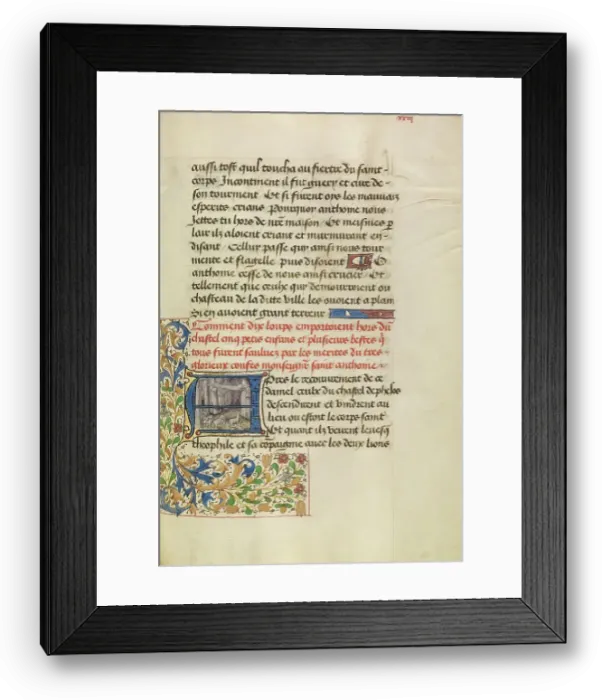 aussi tost quil toucha au fiertre du saint
corps Incontinent il fut guery et cure de
son tourment Et si furent oys les mauuais
esperits crians Pourquoy anthoine nous
Jettes tu hors de nr̄e maison Et mesmes p
lair ilz aloient criant et murmurant en
disant Cellui passe qui ainsi nous tour
mente et flagelle puis disoient O
anthoine cesse de nous ainsi crucier Et
tellement que ceulx qui demouroient ou
chasteau de la ditte ville les ouoient a plain
Si en auoient grant terreur
Comment dix loups emportoient hors du
chastel cinq petis enfans et plusieurs bestes q̄
tous furent sauluez par les merites du tres
glorieux confes monseign̄r saint anthoine
Apres le recouurement de ce
damel ceulx du chastel de phelos
descendirent et vindrent au
lieu ou estoit le corps saint
Et quant ilz veirent leuesq̄
theophile et sa cōpaignie auec les deux lions